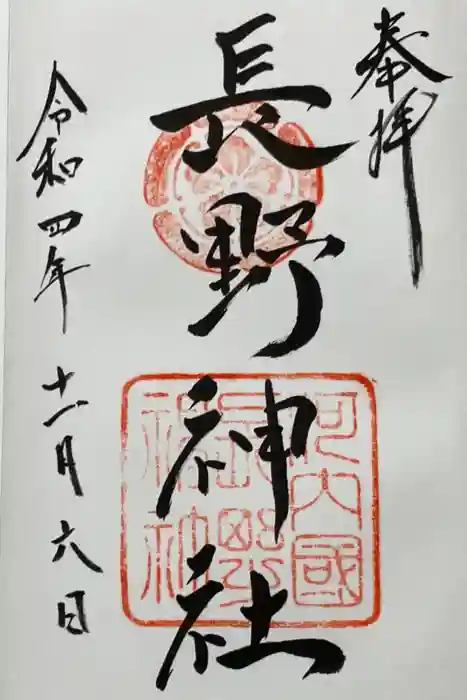 奉拝
長野神社
令和四年十一月六日
河内國